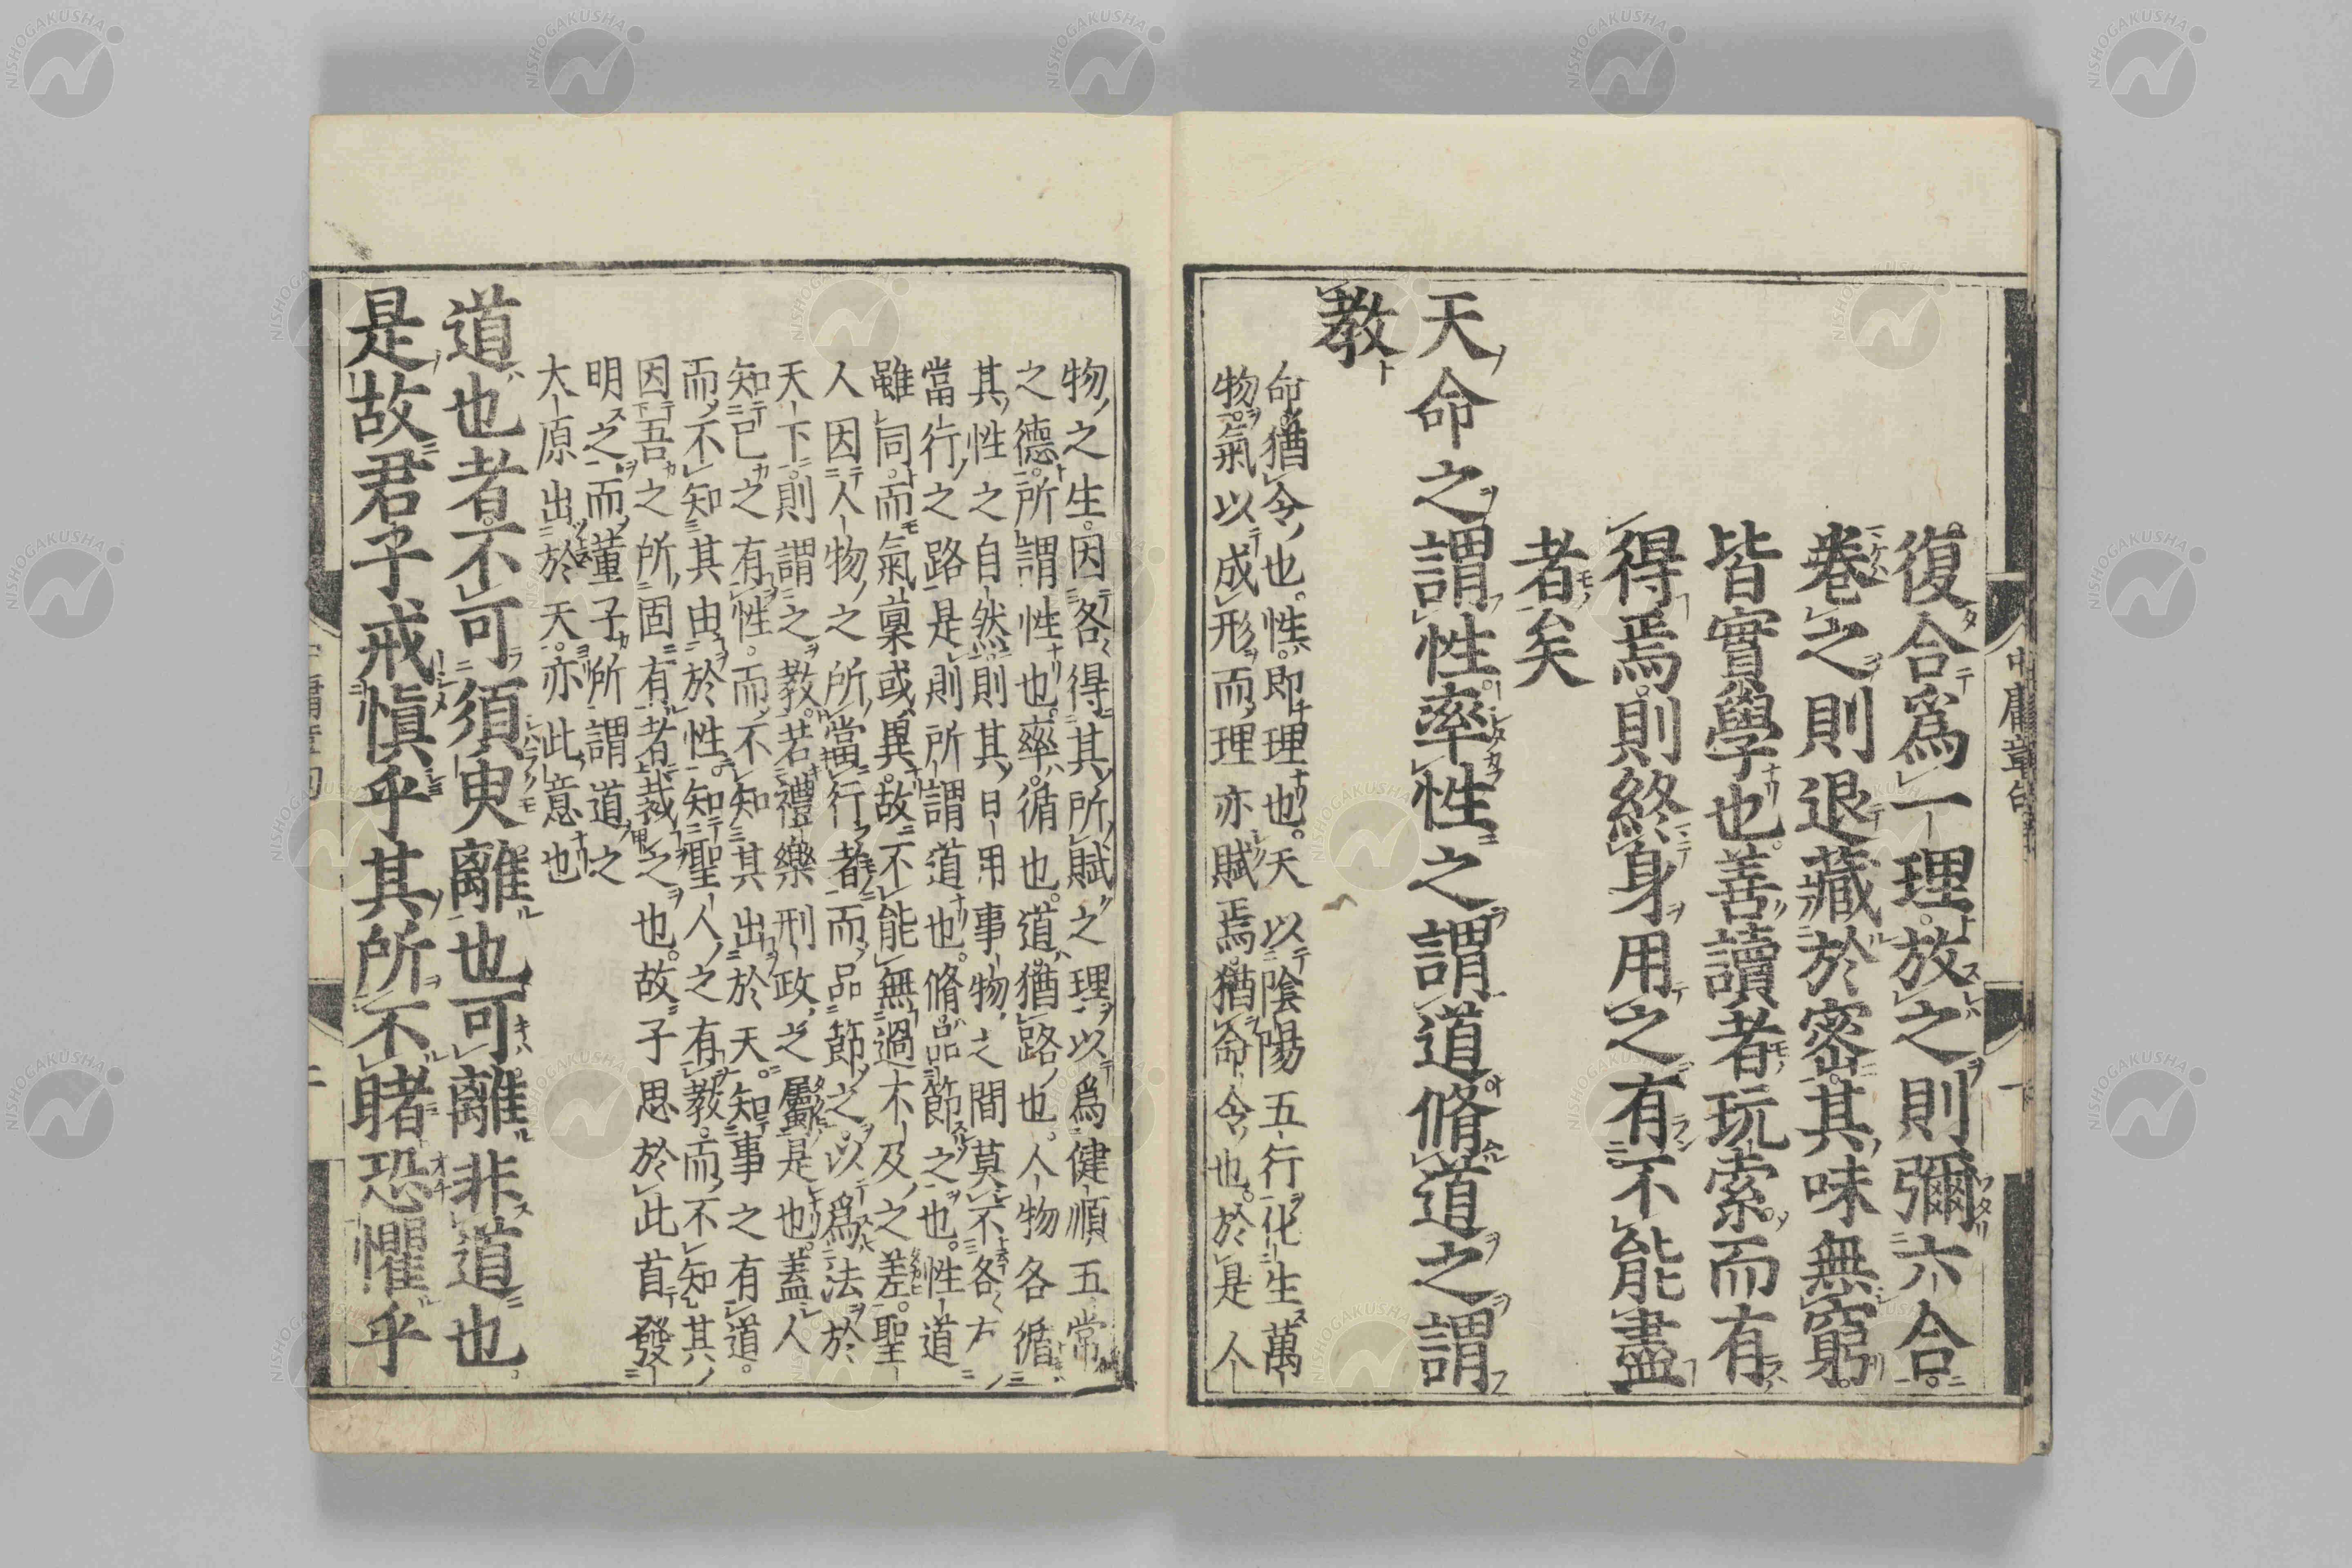 復合爲一理放之則彌六合
卷之則退藏於密其味無窮
皆實學也善讀者玩索而有
得焉則終身用之有不能盡
者矣
天命之謂性率性之謂道脩道之謂
教
命猶令也性即理也天以陰陽五行化生萬
物氣以成形而理亦賦焉猶命令也於是人
物之生因各得其所賦之理以爲健順五常
之德所謂性也率循也道猶路也人物各循
其性之自然則其日用事物之間莫不各
當行之路是則所謂道也脩品節之也性道
雖同而氣稟或異故不能無過不及之差聖
人因人物之所當行者而品節之以爲法於
天下則謂之教若禮樂刑政之屬是也蓋人
知己之有性而不知其出於天知事之有道
而不知其由於性知聖人之有教而不知其
因吾之所固有者裁之也故子思於此首發
明之而董子所謂道之
大原出於天亦此意也
道也者不可須臾離也可離非道也
是故君子戒愼乎其所不睹恐懼乎
中庸章句
NISHOGAKUSHA